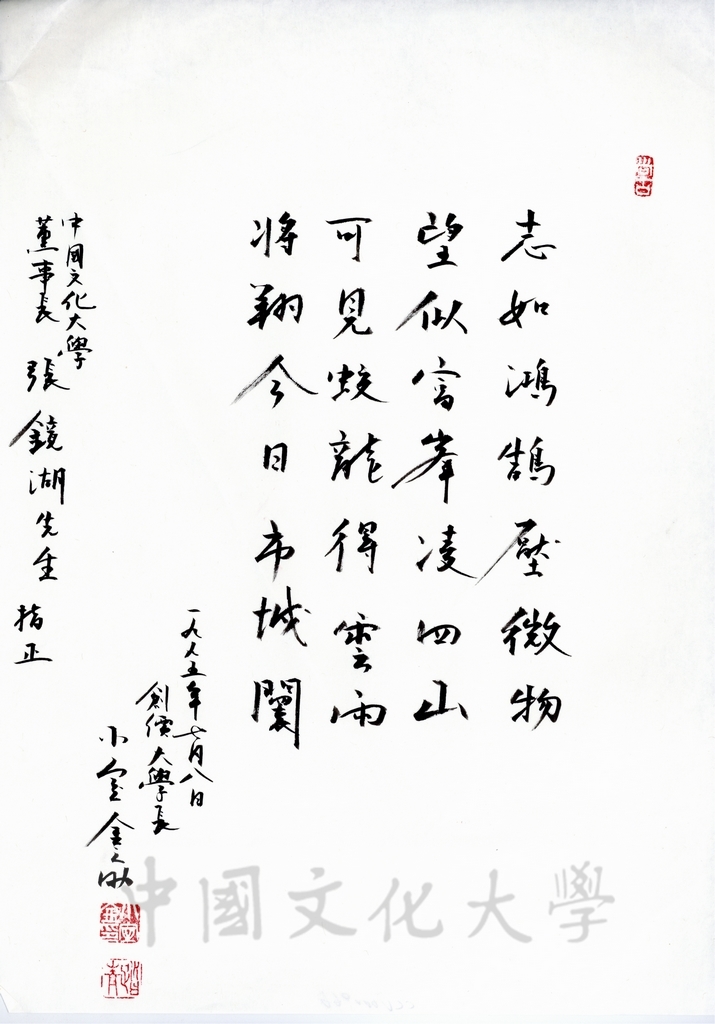 志如鴻鵠壓微物
望似富峯凌四山
可見蛟龍得雲雨
將翔今日市城闤
一九九五年七月八日
創價大學長
小室金之助
中國文化大學
董事長 張鏡湖先生 指正
中國文化大學